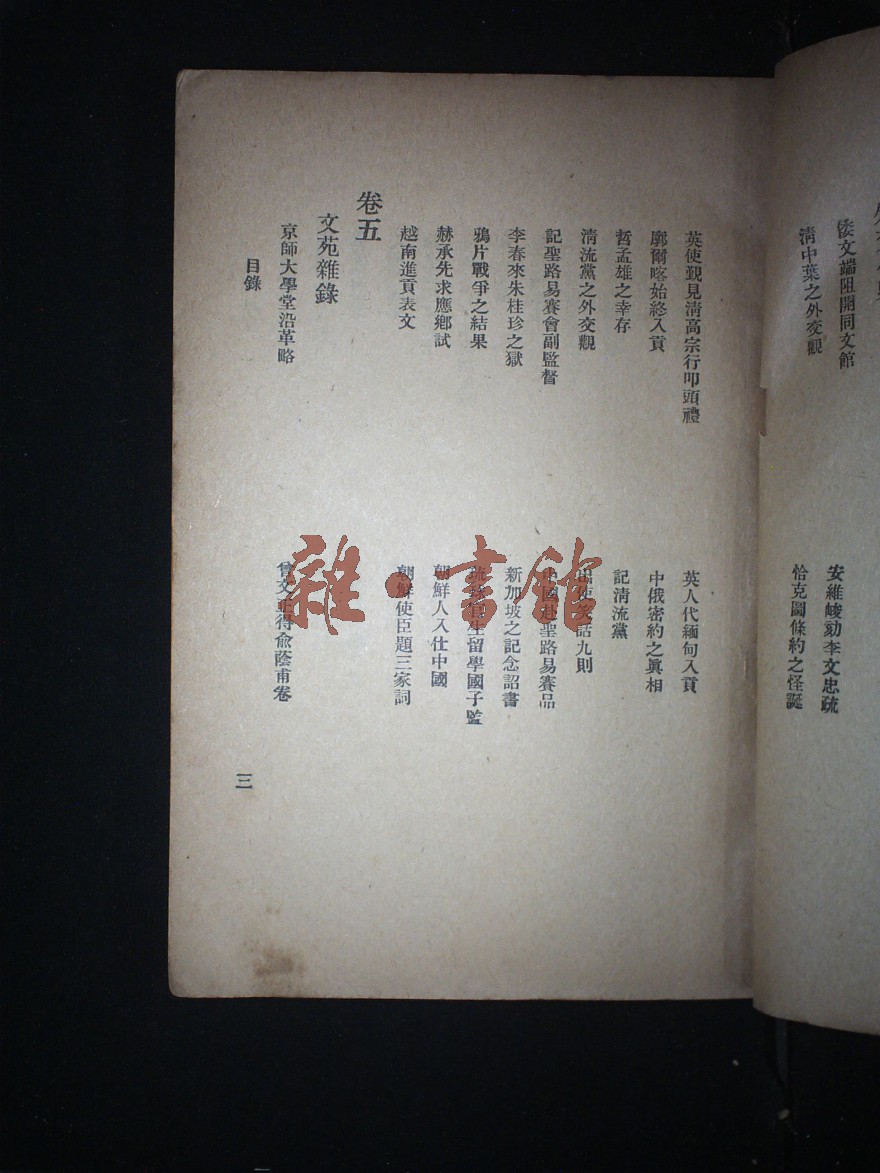 倭文端阻開同文館
安維峻劾李文忠疏
清中葉之外交觀
恰克圖條約之怪誕
英使覲見清高宗行叩頭禮
英人代緬甸入貢
廓爾喀始終入貢
中俄密約之眞相
哲孟雄之幸存
記清流黨
清流黨之外交觀
出使笑話九則
記聖路易賽會副監督
中國赴聖路易賽品
李春來朱桂珍之獄
新加坡之記念詔書
鴉片戰爭之結果
琉球官生留學國子監
赫承先求應鄉試
朝鮮人入仕中國
越南進貢表文
朝鮮使臣題三家詞
卷五
文苑雜錄
京師大學堂沿革略
曾文正得俞蔭甫卷
目錄
三
雜·書館